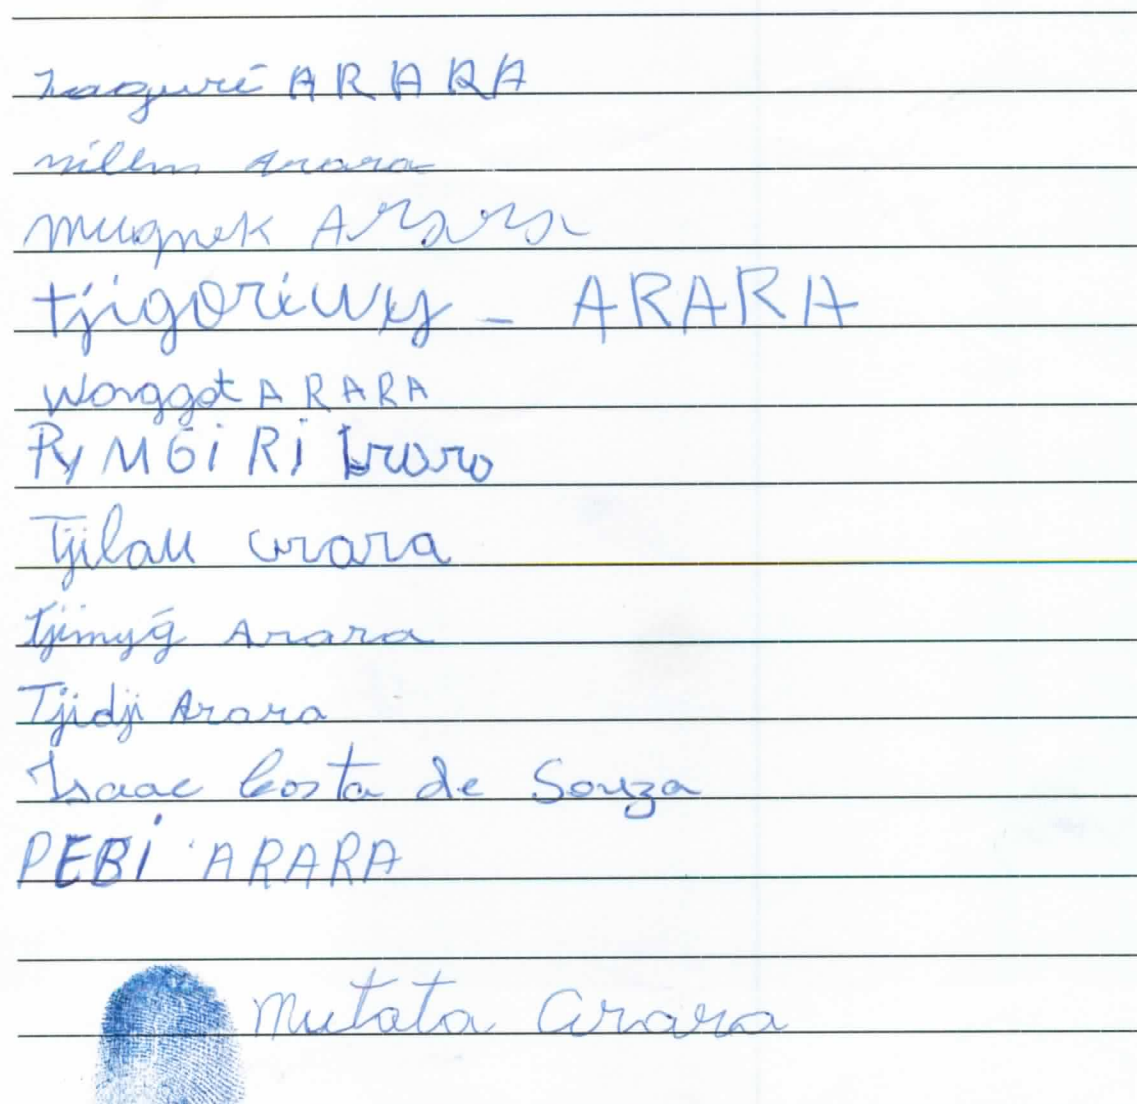 ARARA
Arara
Mugnek Arara
tjigoriwy - ARARA
Worggot ARARA
PyMGiRi Araro
Tjilau arara
Tjimyg̃ Arara
Tjidji Arara
Isaac Costa de Souza
PEBI ARARA
Mutata Arara